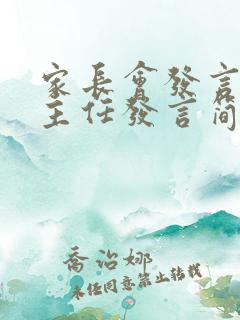 家長會發言
主任發言简
喬治娜
未经同意禁止转载